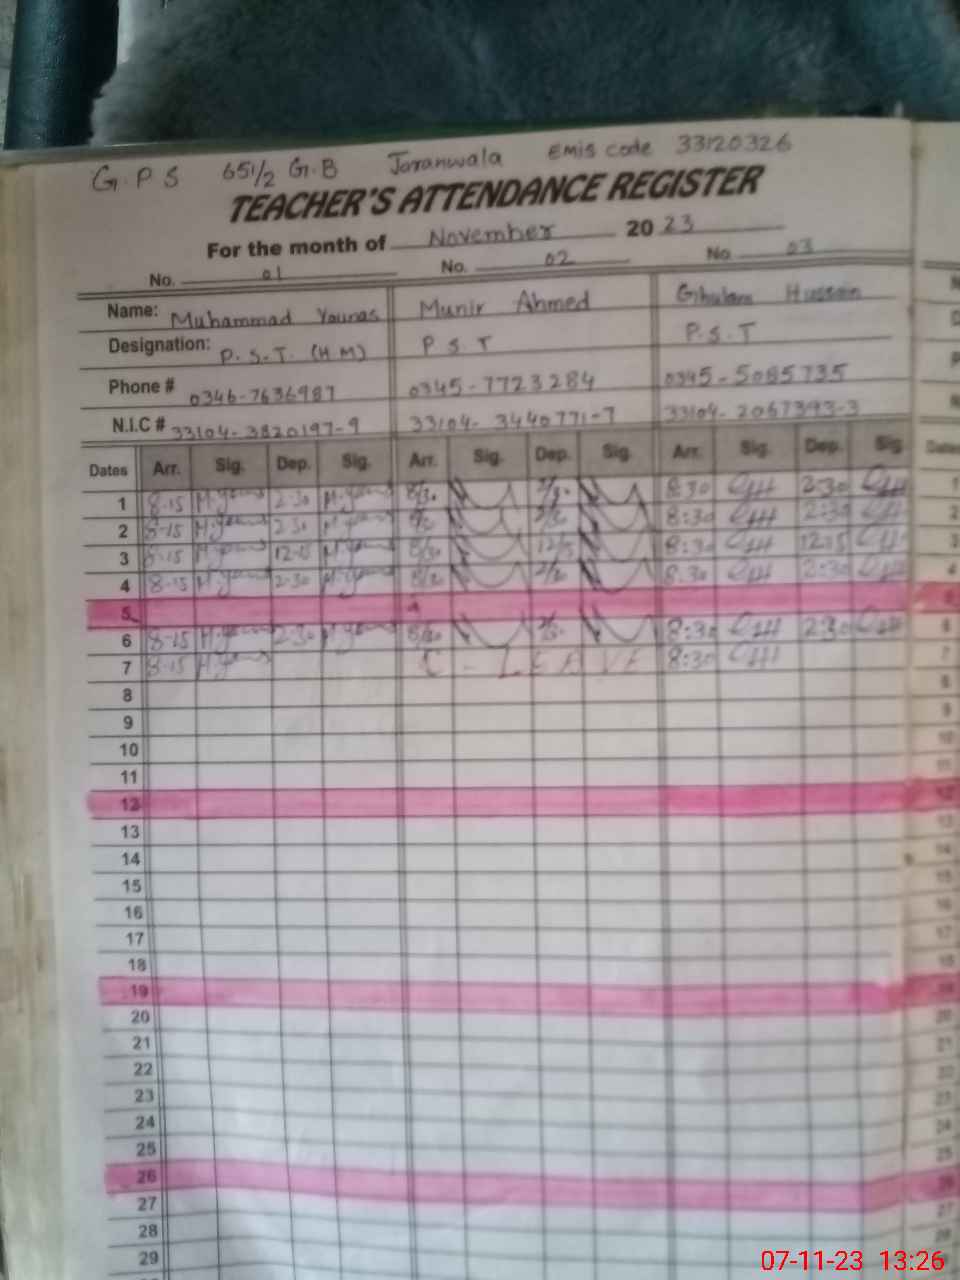 G.P S 651/2 G.B Jaranwala EMIS code 33120326
TEACHER'S ATTENDANCE REGISTER
For the month of November 2023
No. 01 No. 02 No 03
Name: Muhammad Younas Munir Ahmed Ghulam Hussain
Designation: P.S.T. (H M) P S T P.S.T
Phone # 0346-7636987 0345-7723284 0345-5085735
N.I.C # 33104-3820197-9 33104-3440771-7 33104-2067393-3
Dates Arr. Sig. Dep. Sig. Arr. Sig. Dep. Sig. Arr. Sig. Dep. Sig.
1 8-15 M.Younas 2-30 M.Younas 8/30 8:30 GH 2:30 GH
2 8-15 M.Younas 2-30 M.Younas 8:30 GH 2:30 GH
3 8-15 M.Younas 12-15 M.Younas 8/30 12/15 8:30 GH 12:15 GH
4 8-15 M.Younas 2-30 M.Younas 8/30 8:30 GH 2:30 GH
5
6 8-15 M.Younas 2-30 M.Younas 8/30 8:30 GH 2:30 GH
7 8-15 M.Younas C - LEEVE 8:30 GH
8
9
10
11
12
13
14
15
16
17
18
19
20
21
22
23
24
25
26
27
28
29
07-11-23 13:26